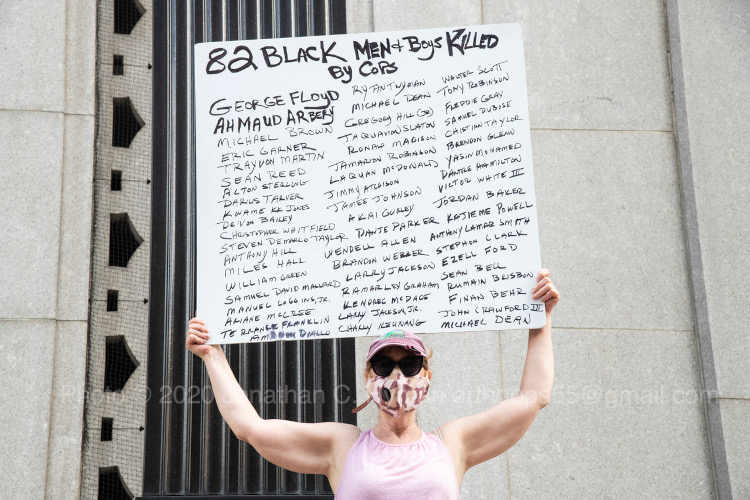 82 BLACK MEN + BOYS KILLED
BY COPS
GEORGE FLOYD
AHMAUD ARBERY
MICHAEL BROWN
ERIC GARNER
TRAYVON MARTIN
SEAN REED
ALTON STERLING
DARIUS TARVER
KWAME KK JONES
DE'VON BAILEY
CHRISTOPHER WHITFIELD
STEVEN DEMARCO TAYLOR
ANTHONY HILL
MILES HALL
WILLIAM GREEN
SAMUEL DAVID MALLARD
MANUEL LOGGINS, JR.
ARIANE MCCREE
TERRANCE FRANKLIN
DIALLO
RYAN TWYMAN
MICHAEL DEAN
GREGORY HILL
JAQUAVION SLATON
RONALD MADISON
JAMARION ROBINSON
LAQUAN MCDONALD
JIMMY ATCHISON
JAMEE JOHNSON
AKAI GURLEY
DANTE PARKER
WENDELL ALLEN
BRANDON WEBBER
LARRY JACKSON
RAMARLEY GRAHAM
KENDREC MCDADE
LARRY JACKSON, JR.
CHARLY KEUNANG
WALTER SCOTT
TONY ROBINSON
FREDDIE GRAY
SAMUEL DUBOSE
CHISTIAN TAYLOR
BRENDON GLENN
YASIN MOHAMED
DANTRE HAMILTON
VICTOR WHITE III
JORDAN BAKER
KAJIEME POWELL
ANTHONY LAMAR SMITH
STEPHON CLARK
EZELL FORD
SEAN BELL
RUMAIN BRISBON
FINAN BEHR
JOHN CRAWFORD III
MICHAEL DEAN
Photo © 2020 Jonathan C. @gmail.com